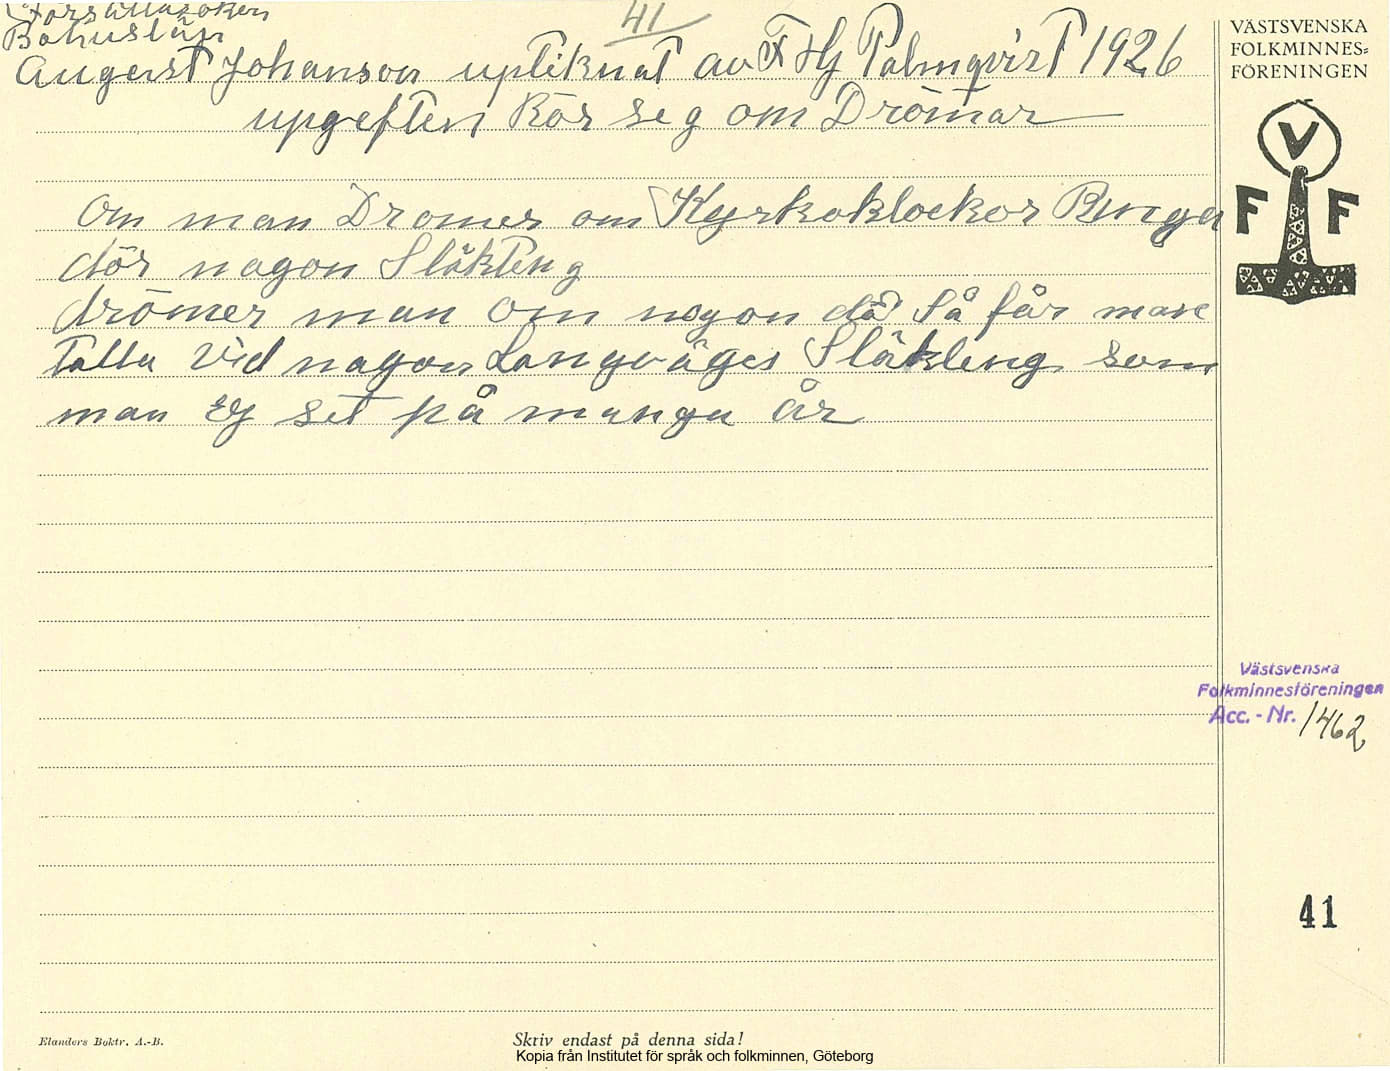 Forshällasoken
Bohuslän
41
Augerst Johanson uptiknat av F Hj Palmqvist 1926
upgeften Rör seg om Drömar
Om man Dromer om Kyrkoklockor Ringa
dör nagon Släkteng
drömer man om nogon då så får man
talla vid nagon Langvägs Släkteng som
man Ej set på manga år
VÄSTSVENSKA
FOLKMINNES=
FÖRENINGEN
V
F F
Västsvenska
Folkminnesföreningen
Acc. - Nr. 1462
41
Elanders Boktr. A.-B.
Skriv endast på denna sida!
Kopia från Institutet för språk och folkminnen, Göteborg